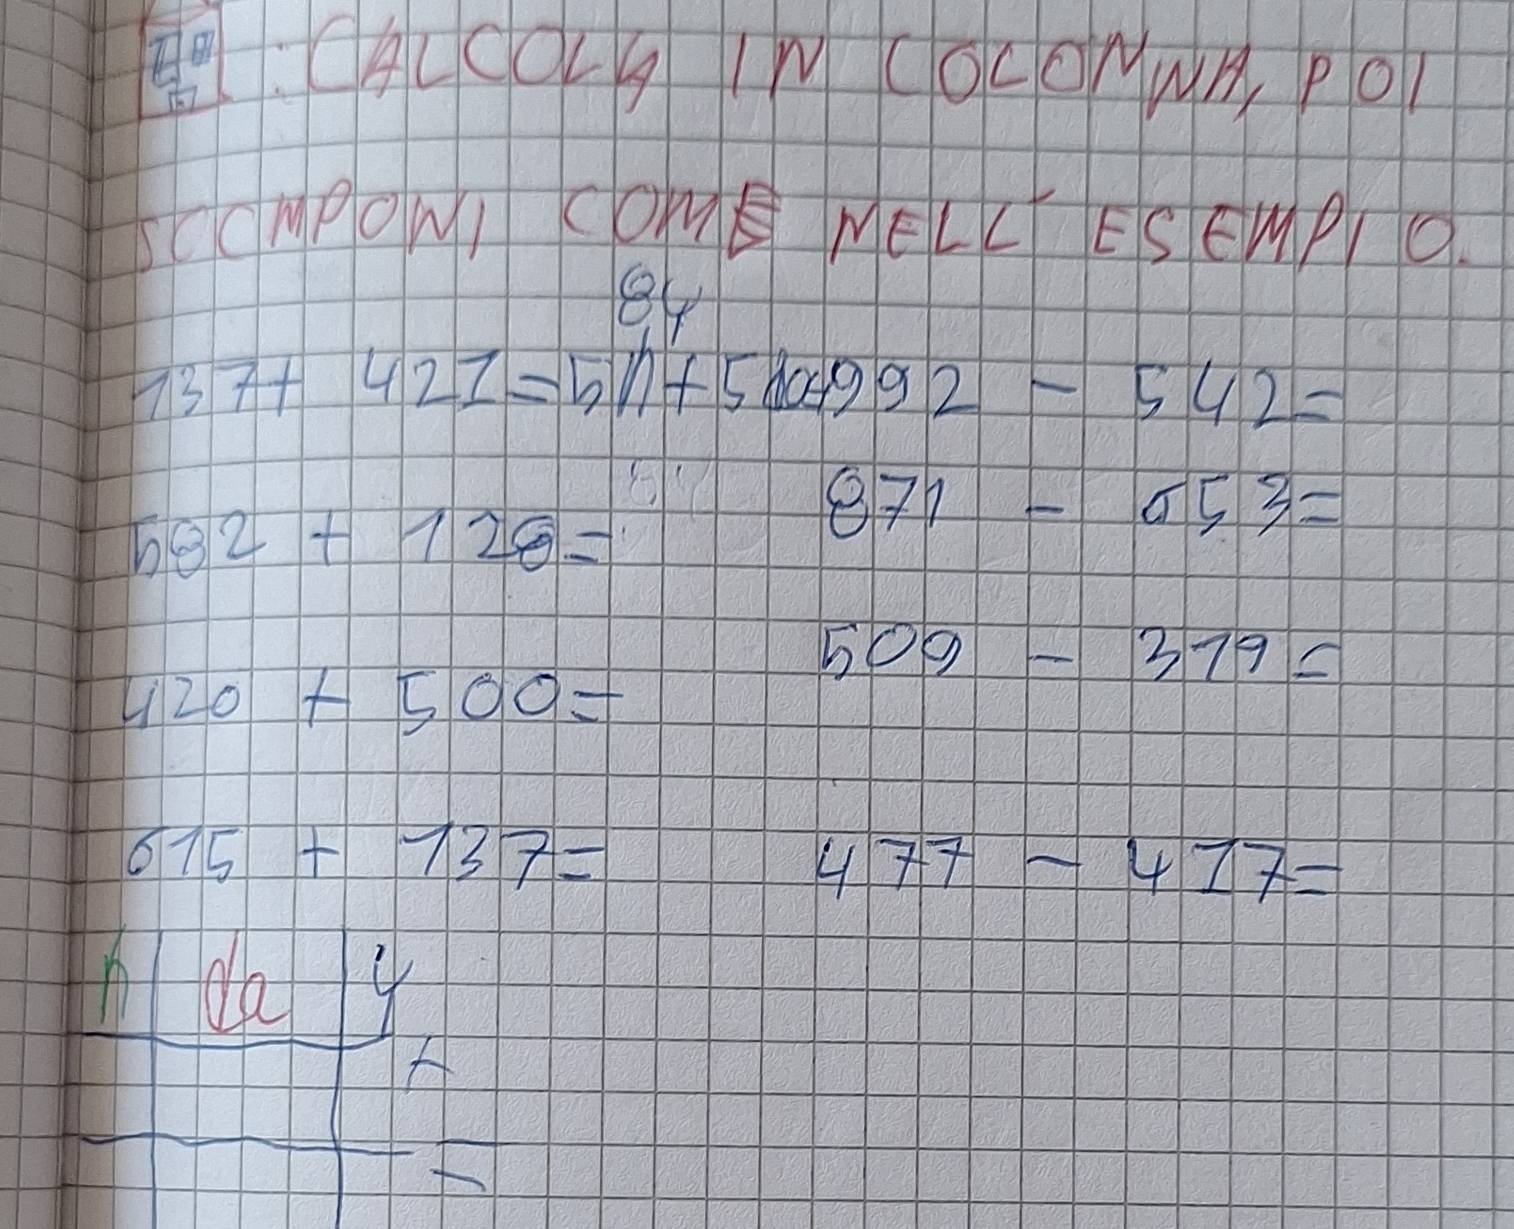 : CALCOLA IN COLONNA, POI
SCOMPONI COME NELL'ESEMPIO.
84
137+ 421=5h+5da+ 992 - 542=
871 - 653=
582 + 128=
509 - 319=
420 + 500=
615 + 137= 477 - 417=
h da u
+
=